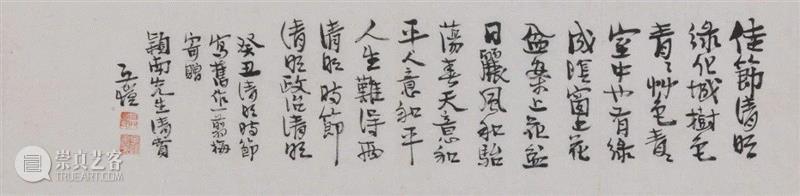 佳節清明
綠化城樹色
青々艸色青々
室中也有綠
成陰窗上花
盈案上花盆
日麗風和駘
蕩春天意和
平人意和平
人生難得兩
清明時節
清明政治清明
癸丑清明時節
寫舊作一剪梅
寄贈
穎南先生清賞
子愷
崇真艺客